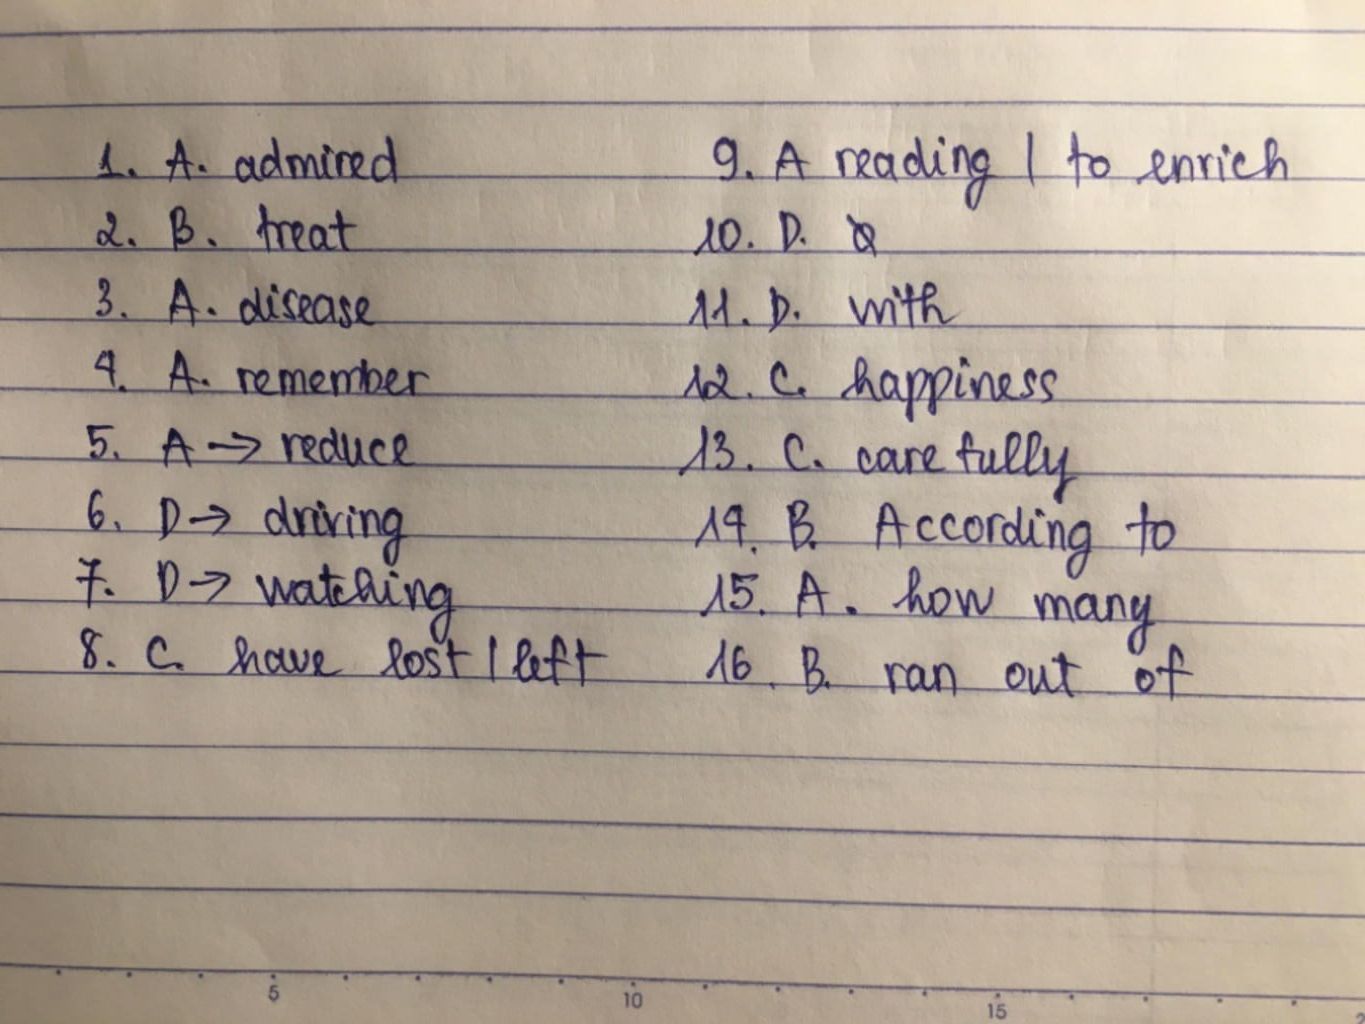 1. A. admired
2. B. treat
3. A. disease
4. A. remember
5. A → reduce
6. D → driving
7. D → watching
8. C. have lost | left
9. A reading | to enrich
10. D.
11. D. with
12. C. happiness
13. C. carefully
14. B. According to
15. A. how many
16. B. ran out of
5 10 15